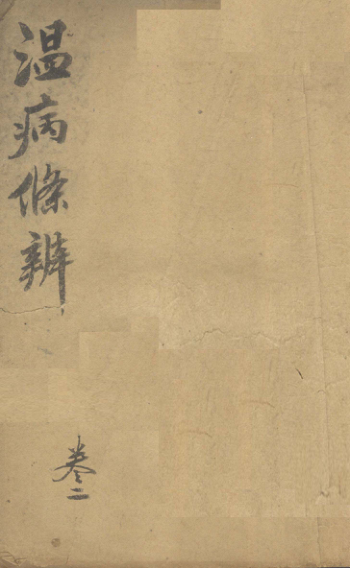 温病條辨
卷二